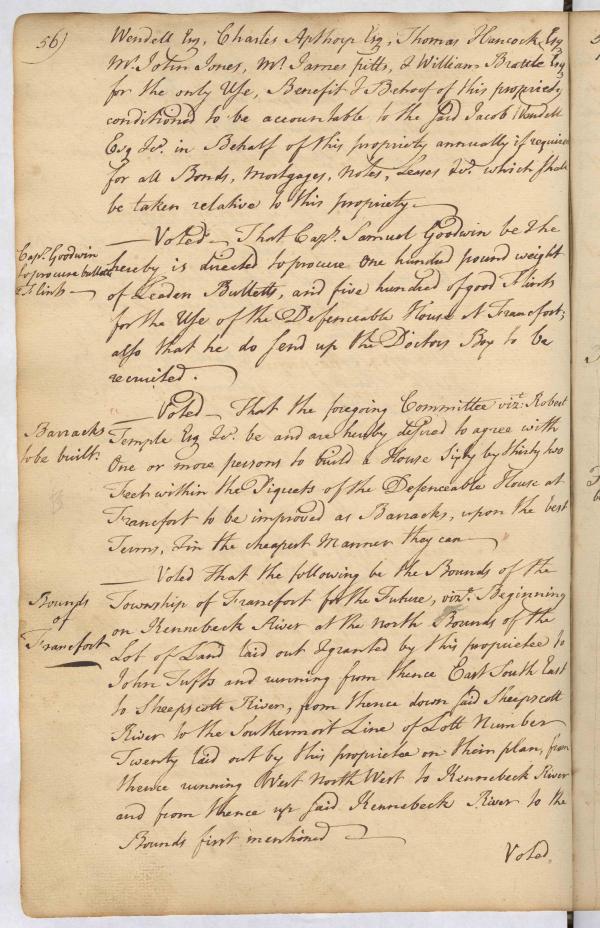 56)
Wendell Esq, Charles Apthorp Esq, Thomas Hancock Esq
Mr John Jones, Mr James Pitts, & William Brattle Esq
for the only Use, Benefit & Behoof of this propriety
conditioned to be accountable to the said Jacob Wendell
Esq &c. in Behalf of this propriety annually if required
for all Bonds, Mortgages, Notes, Leases &c. which shall
be taken relative to this propriety
Capt. Goodwin
to procure bulletts
& Flints
— Voted — That Capt. Samuel Goodwin be & he
hereby is directed to procure One hundred pound weight
of Leaden Bulletts, and five hundred of good Flints
for the Use of the Defenceable House at Francfort;
also that he do send up the Doctors Box to be
recruited.
Barracks
to be built.
— Voted — That the foregoing Committee vizt. Robert
Temple Esq &c. be and are hereby desired to agree with
One or more persons to build a House Sixty by thirty two
Feet within the Piquets of the Defenceable House at
Francfort to be improved as Barracks, upon the best
Terms, & in the cheapest Manner they can
Bounds
of
Francfort
— Voted That the following be the Bounds of the
Township of Francfort for the Future, vizt. Beginning
on Kennebeck River at the North Bounds of the
Lot of Land laid out & granted by this propriete to
John Tufts and running from thence East South East
to Sheepscott River, from thence down said Sheepscott
River to the Southermost Line of Lott Number
Twenty laid out by this propriete on their plan, from
thence running West North West to Kennebeck River
and from thence up said Kennebeck River to the
Bounds first mentioned
Voted